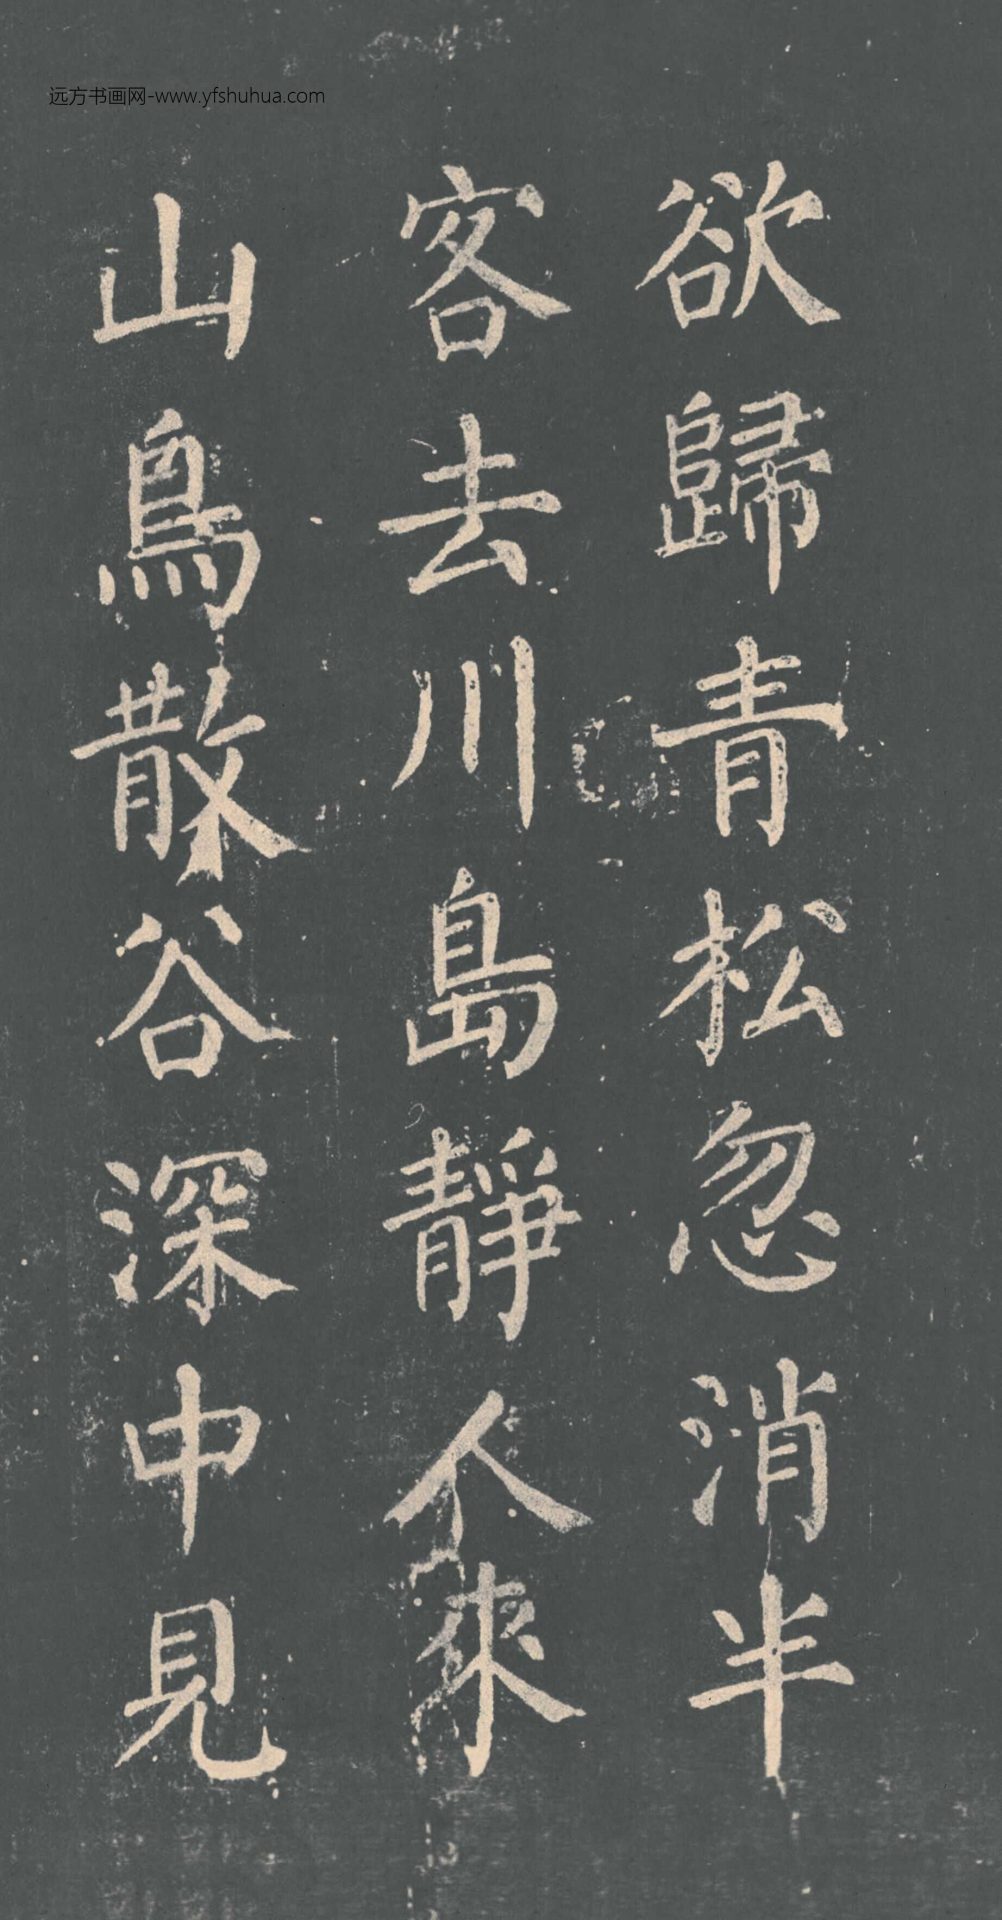 远方书画网-www.yfshuhua.com
欲歸青松忽消半
客去川島靜人來
山鳥散谷深中見